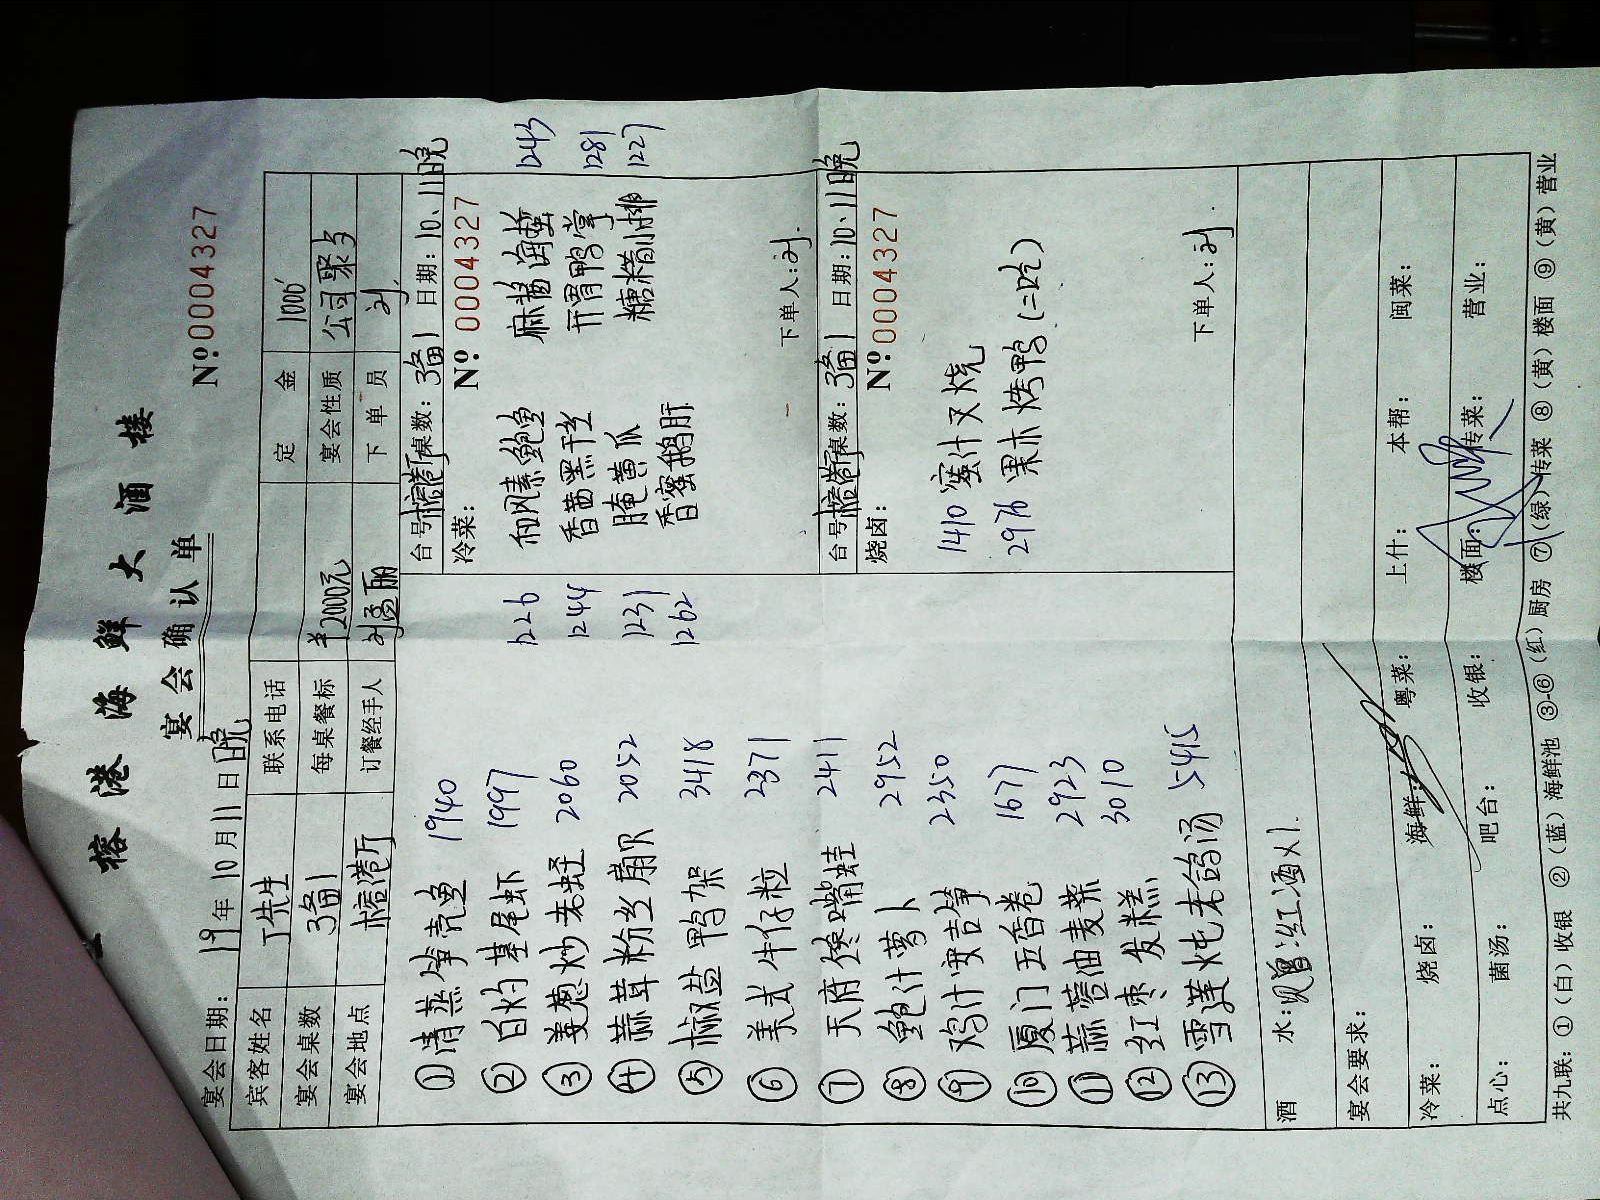 榕港海鲜大酒楼
宴会确认单
№0004327
宴会日期: 19年10月11日晚
宾客姓名 丁先生 联系电话 定金 1000
宴会桌数 3备1 每桌餐标 ¥2000元 宴会性质 公司聚
宴会地点 榕港厅 订餐经手人 刘孟丽 下单员 刘
① 清蒸笋壳鱼 1940
② 白灼基尾虾 1997
③ 姜葱炒老蛏 2060
④ 蒜茸粉丝扇贝 2052
⑤ 椒盐鸭架 3418
⑥ 美式牛仔粒 2371
⑦ 天府馋嘴蛙 2411
⑧ 鲍汁萝卜 2952
⑨ 鸡汁安吉笋 2350
⑩ 厦门五香卷 1677
⑪ 蒜蓉油麦菜 2923
⑫ 红枣发糕 3010
⑬ 雪莲炖老鸽汤 5415
台号 榕港厅 桌数: 3备1 日期: 10、11晚
冷菜: №0004327
1226 和风素鲍鱼 麻酱海蜇 1243
1244 香茜黑干丝 开胃鸭掌 1281
1231 腌黄瓜 糖醋小排 1227
1262 香蜜鹅肝
下单人: 刘
台号 榕港厅 桌数: 3备1 日期: 10、11晚
烧卤: №0004327
1410 蜜汁叉烧
2976 果木烤鸭(二吃)
下单人: 刘
酒水: 红酒X1
宴会要求:
冷菜: 烧卤: 海鲜: 粤菜: 上什: 本帮: 闽菜:
点心: 菌汤: 吧台: 收银: 楼面: 传菜: 营业:
共九联: ①(白)收银 ②(蓝)海鲜池 ③-⑥(红)厨房 ⑦(绿)传菜 ⑧(黄)楼面 ⑨(黄)营业